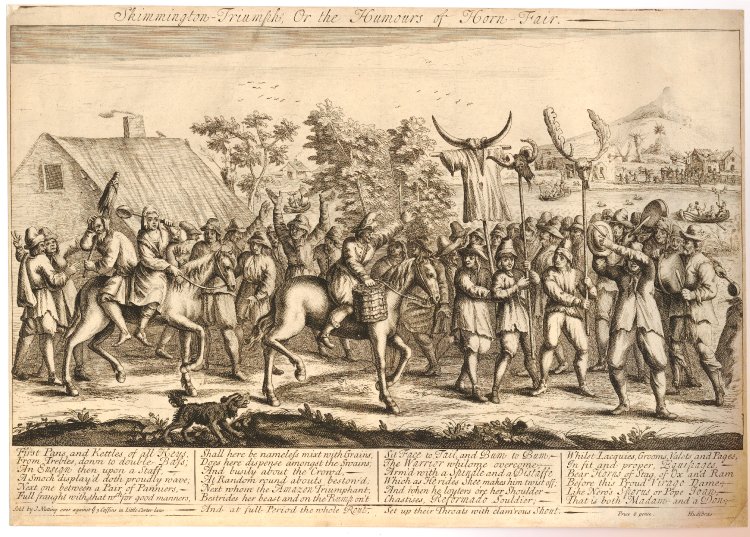 Skimmington-Triumphs, Or the Humours of Horn-Fair.
First Pans, and Kettles of all Keys,
From Trebles, down to double-Bass;
An Ensign then upon a Staff,
A Smock display'd doth proudly wave;
Next one between a Pair of Panners,
Full fraught with that wch for good manners,
Shall here be nameless mixt with Grains,
Does here dispense amongst the Swains;
And busily about the Crowd,
At Random round abouts bestow'd.
Next whom the Amazon Triumphant,
Bestrides her beast and on the Rump on't
Sat Face to Tail, and Bum to Bum,
The Warrior whilome overcome,
Arm'd with a Spindle and a Distaff,
Which as He rides Shee makes him twist off;
And when he loyters ore her Shoulder
Chastises, Reformado Souldier,
Whilst Lacquies, Grooms, Valets and Pages,
In fit and proper Equipages,
Bear Horns of Stag, of Ox and Ram
Before this Proud Virago Dame,
Like Nero's Sporus or Pope Joan,
That is both Madam and a Don,
And at full Period the whole Rout,
Set up their Throats with clam'rous Shout.
Sold by J. Nutting over against ye Coffins in Little Carter lane
Price 6 pence.
Hudibras